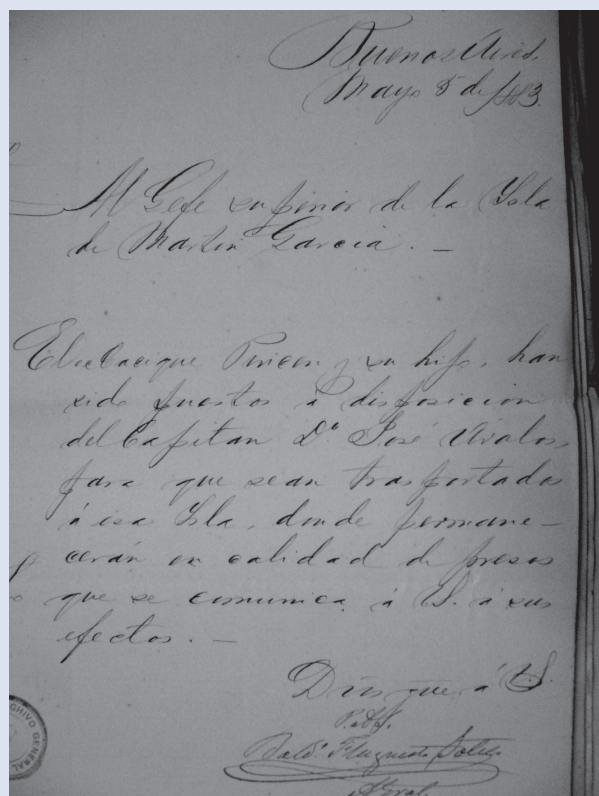 Buenos Aires,
Mayo 5 de 1883.
Al Gefe superior de la Ysla
de Martin Garcia. —
El cacique Pincen y su hijo, han
sido puestos á disposicion
del Capitan Dn José Avalos
para que sean trasportados
á esa Ysla, donde permane-
cerán en calidad de presos
que se comunica á U.S. á sus
efectos. —
Dios gue á U.S.
CHIVO GENERAL